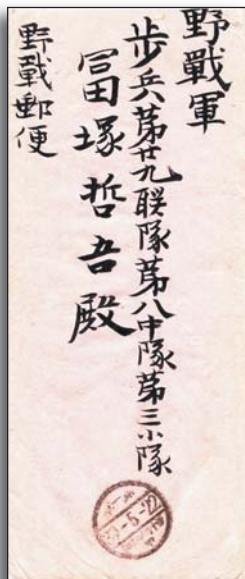 野戰軍
歩兵第廿九聯隊第八中隊第三小隊
冨塚哲吾殿
野戰郵便